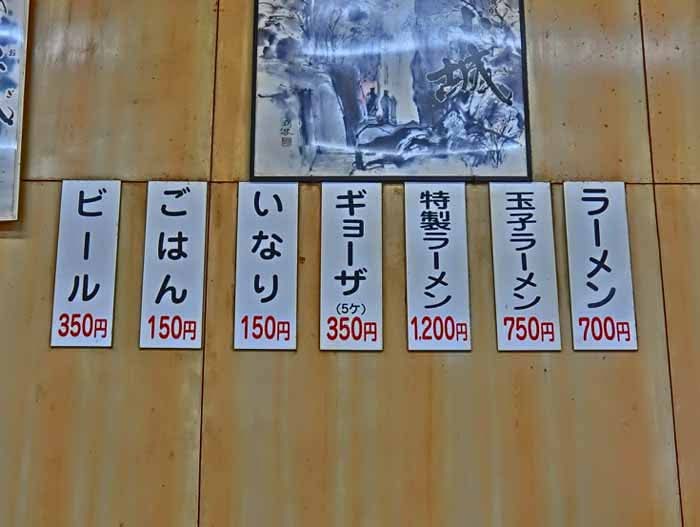 城
ラーメン
700円
玉子ラーメン
750円
特製ラーメン
1.200円
ギョーザ
(5ケ)
350円
いなり
150円
ごはん
150円
ビール
350円